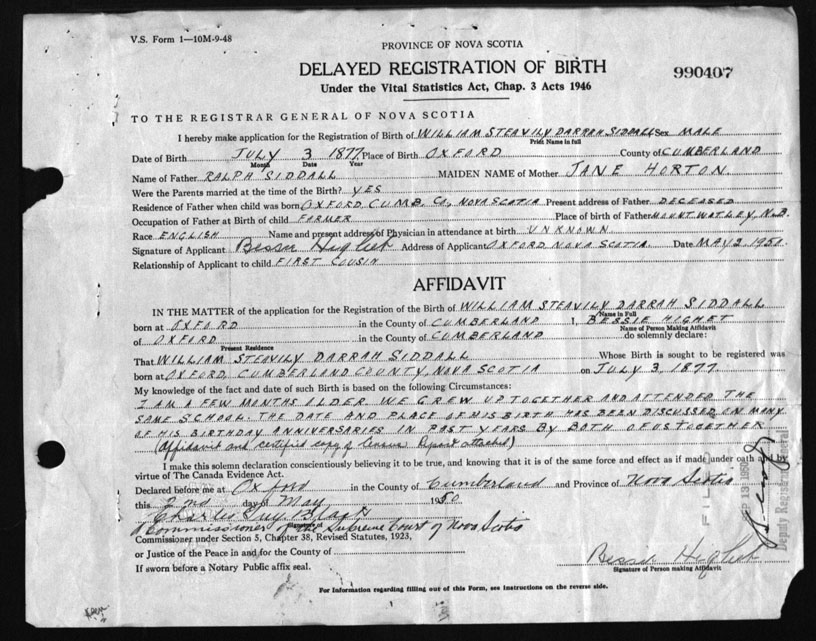 V.S. Form 1—10M-9-48
PROVINCE OF NOVA SCOTIA
DELAYED REGISTRATION OF BIRTH
990407
Under the Vital Statistics Act, Chap. 3 Acts 1946
TO THE REGISTRAR GENERAL OF NOVA SCOTIA
I hereby make application for the Registration of Birth of WILLIAM STEAVILY DARRAH SIDDALL Sex MALE
Print Name in full
Date of Birth JULY 3 1877 Place of Birth OXFORD County of CUMBERLAND
Month Date Year
Name of Father RALPH SIDDALL MAIDEN NAME of Mother JANE HORTON.
Were the Parents married at the time of the Birth? YES
Residence of Father when child was born OXFORD, CUMB. CO, NOVA SCOTIA Present address of Father DECEASED
Occupation of Father at Birth of child FARMER Place of birth of Father MOUNT WATLEY, N.B.
Race ENGLISH Name and present address of Physician in attendance at birth UNKNOWN
Signature of Applicant Bessie Highet Address of Applicant OXFORD, NOVA SCOTIA. Date MAY 2, 1950.
Relationship of Applicant to child FIRST COUSIN
AFFIDAVIT
IN THE MATTER of the application for the Registration of the Birth of WILLIAM STEAVILY DARRAH SIDDALL
Name in Full
born at OXFORD in the County of CUMBERLAND I, BESSIE HIGHET
Name of Person Making Affidavit
of OXFORD in the County of CUMBERLAND do solemnly declare:
Present Residence
That WILLIAM STEAVILY DARRAH SIDDALL Whose Birth is sought to be registered was
born at OXFORD, CUMBERLAND COUNTY, NOVA SCOTIA on JULY 3, 1877.
My knowledge of the fact and date of such Birth is based on the following Circumstances:
I AM A FEW MONTHS ELDER. WE GREW UP TOGETHER AND ATTENDED THE
SAME SCHOOL. THE DATE AND PLACE OF HIS BIRTH HAS BEEN DISCUSSED ON MANY
OF HIS BIRTHDAY ANNIVERSARIES IN PAST YEARS BY BOTH OF US TOGETHER
(Affidavit and certified copy of Census Report attached)
I make this solemn declaration conscientiously believing it to be true, and knowing that it is of the same force and effect as if made under oath and by
virtue of The Canada Evidence Act.
Declared before me at Oxford in the County of Cumberland and Province of Nova Scotia
this 2nd day of May 1950
Charles Guy
A Commissioner of the Supreme Court of Nova Scotia
Commissioner under Section 5, Chapter 38, Revised Statutes, 1923,
or Justice of the Peace in and for the County of
If sworn before a Notary Public affix seal.
Bessie Highet
Signature of Person making Affidavit
For Information regarding filling out of this Form, see Instructions on the reverse side.
FILED
SEP 13 1950
Deputy Registrar General